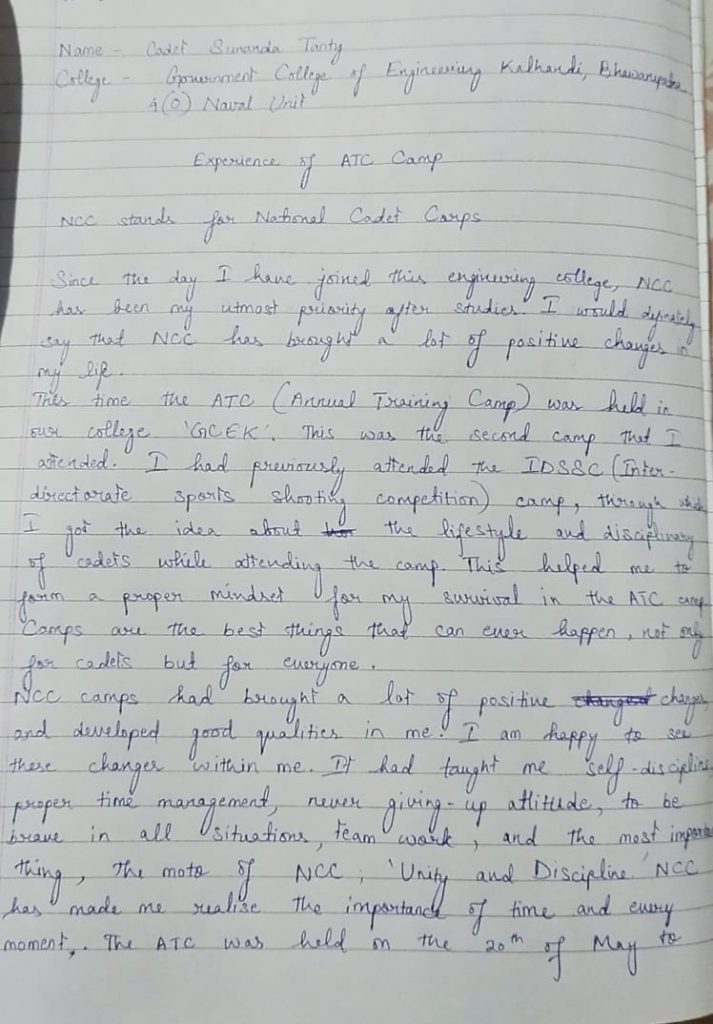 Name - Cadet Sunanda Tanty
College - Government College of Engineering Kalhandi, Bhawanipatna
4 (O) Naval Unit
Experience of ATC Camp
NCC stands for National Cadet Corps
Since the day I have joined this engineering college, NCC
has been my utmost priority after studies. I would definately
say that NCC has brought a lot of positive changes in
my life.
This time the ATC (Annual Training Camp) was held in
our college 'GCEK'. This was the second camp that I
attended. I had previously attended the IDSSC (Inter-
directorate sports shooting competition) camp, through which
I got the idea about the lifestyle and disciplinary
of cadets while attending the camp. This helped me to
form a proper mindset for my survival in the ATC camp
Camps are the best things that can ever happen, not only
for cadets but for everyone.
NCC camps had brought a lot of positive changes
and developed good qualities in me. I am happy to see
these changes within me. It had taught me self-discipline,
proper time management, never giving-up attitude, to be
brave in all situations, team work, and the most important
thing, the moto of NCC, 'Unity and Discipline.' NCC
has made me realise the importance of time and every
moment,. The ATC was held on the 20th of May to